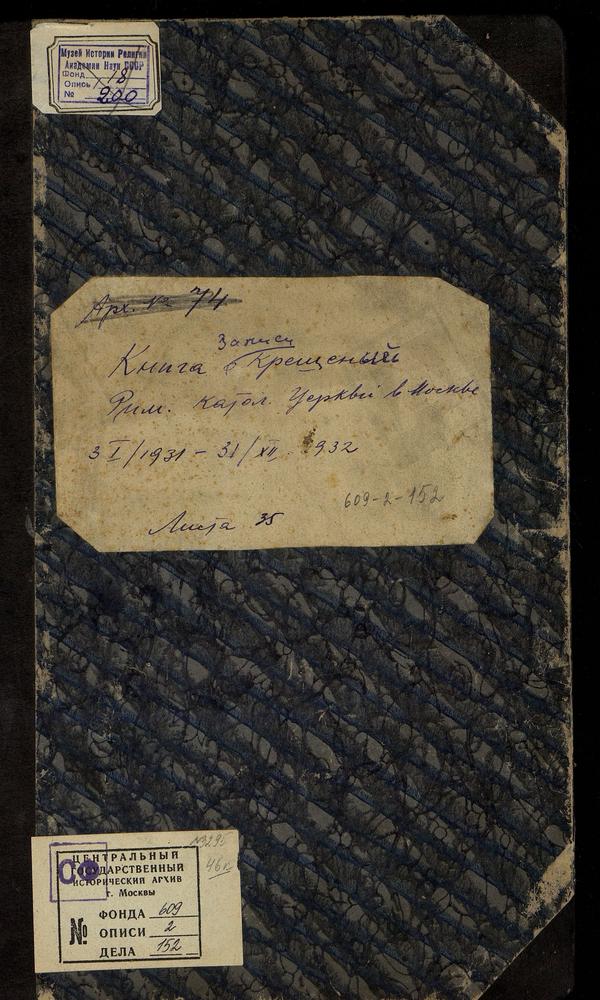 Музей Истории Религии
Академии Наук СССР
Фонд 18
Опись
№ 200
Арх. № 74
Записи
Книга Крещеный
Рим. катол. Церкви в Москве
3 I/1931 - 31/XII 1932
609-2-152
Листа 35
№3295
46к
ОФ
ЦЕНТРАЛЬНЫЙ
ГОСУДАРСТВЕННЫЙ
ИСТОРИЧЕСКИЙ АРХИВ
г. Москвы
№
ФОНДА 609
ОПИСИ 2
ДЕЛА 152